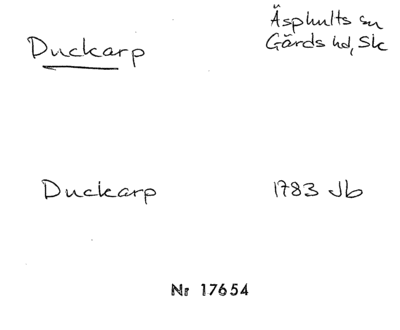 Duckarp
Äsphults sn
Gärds hd, Sk
Duckarp
1783 Jb
Nr 17654